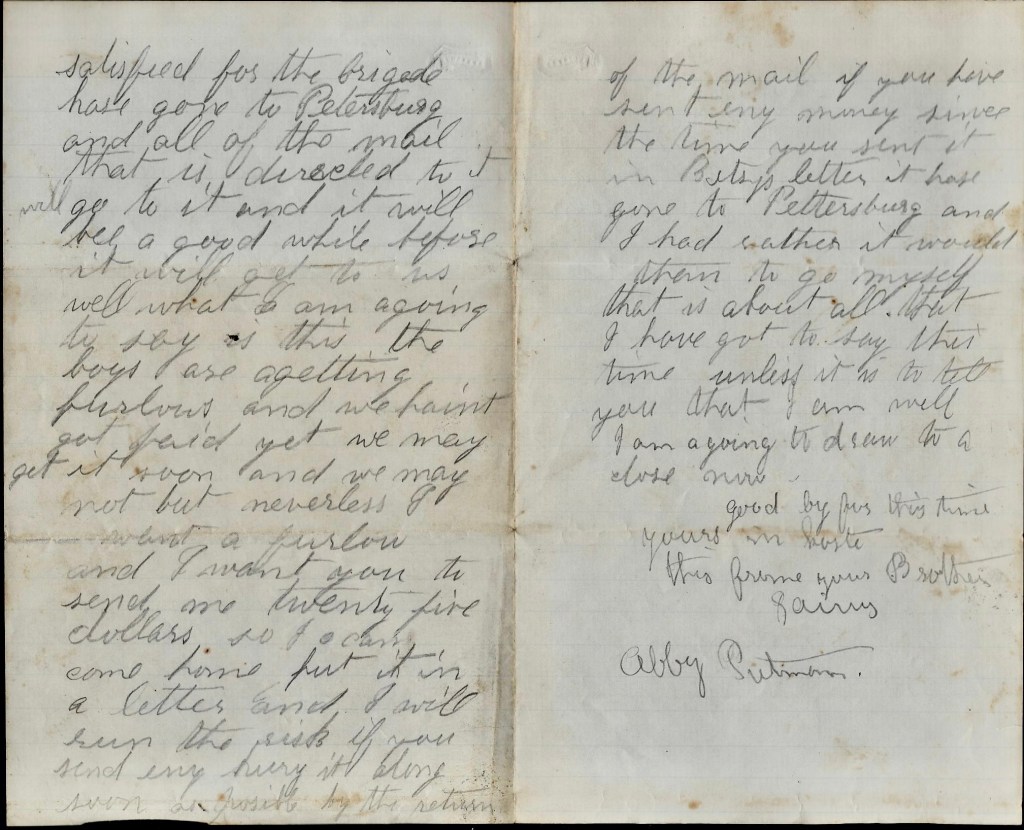 satisfied for the brigade
hase gone to Petersburg
and all of the mail
that is directed to it
will go to it and it will
bee a good while before
it will get to us
well what I am agoing
to say is this the
boys are agetting
furlows and we haint
got paid yet we may
get it soon and we may
not but neverless I
want a furlow
and I want you to
send me twenty five
dollars so I can
come home put it in
a letter and I will
run the risk if you
send eny hury it along
soon as posible by the return
of the mail if you have
sent eny money since
the time you sent it
in Betsys letter it hase
gone to Pettersburg and
I had rather it would
them to go myself
that is about all that
I have got to say this
time unless it is to tell
you that I am well
I am agoing to draw to a
close now
good by for this time
yours in haste
this frome your Brother
Jairus
Abby Putmam.